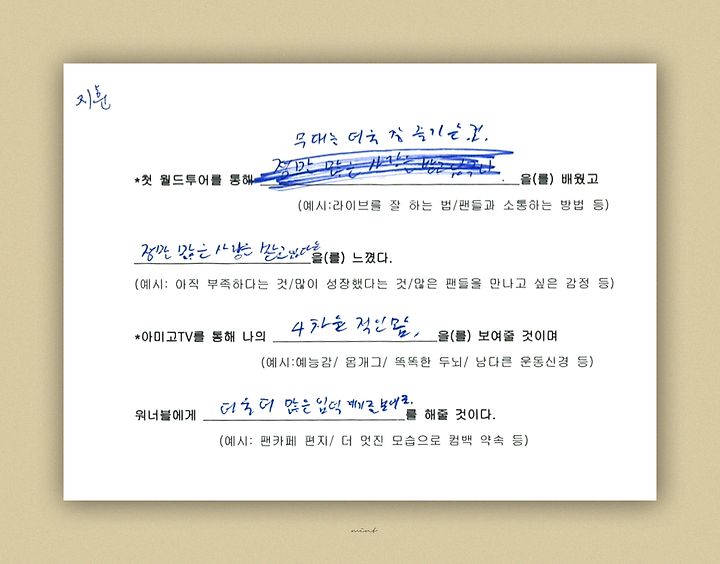 지훈
무대는 더욱 잘 즐기는 걸.
*첫 월드투어를 통해 정말 많은 사랑을 받고 있다 을(를) 배웠고
(예시:라이브를 잘 하는 법/팬들과 소통하는 방법 등)
정말 많은 사랑을 받고있다는 을(를) 느꼈다.
(예시: 아직 부족하다는 것/많이 성장했다는 것/많은 팬들을 만나고 싶은 감정 등)
*아미고TV를 통해 나의 4차원 적인 몸, 을(를) 보여줄 것이며
(예시:예능감/ 몸개그/ 똑똑한 두뇌/ 남다른 운동신경 등)
워너블에게 더욱 더 많은 입덕 를 해줄 것이다.
(예시: 팬카페 편지/ 더 멋진 모습으로 컴백 약속 등)
mint